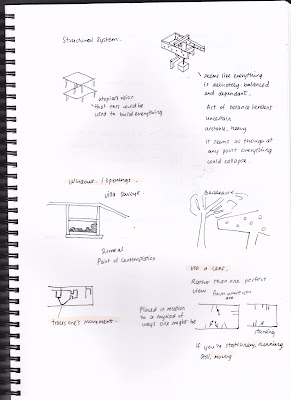 Structural System.
seems like everything
is delicately balanced
and dependant.
utopian vision
that this could be
used to build everything
Act of balance renders
uncertain
unstable, heavy
it seems as though at
any point everything
could collapse.
Windows / Openings.
villa savoye
Bordeaux
surreal
Point of contemplation
via a lens.
Rather than one perfect
view
from where you
are
traces one's movement
Placed in relation
to a myriad of
ways one might be
standing
if you're stationery, running
still, moving